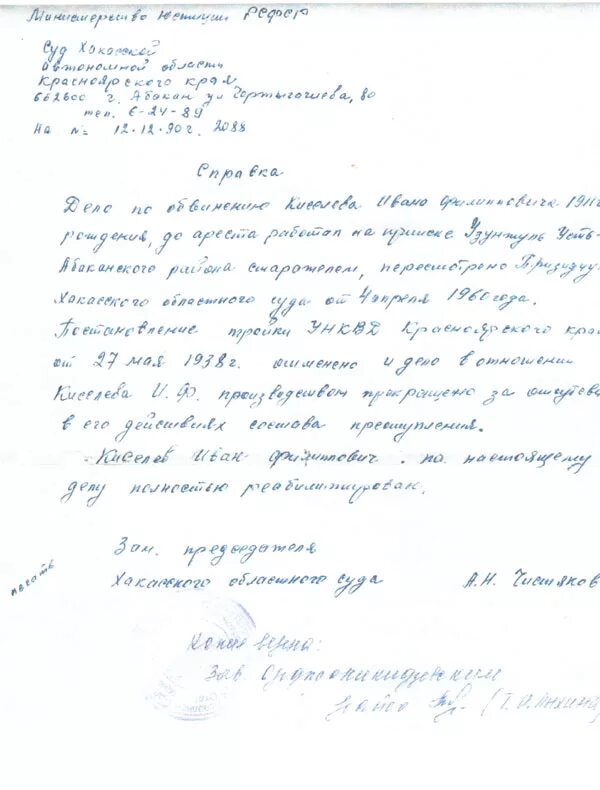 Министерство Юстиции РСФСР
Суд Хакасской
автономной области
Красноярского края
662600 г. Абакан ул Чертыгашева, 80
тел. 6-24-89
на № 12.12.90г. 2088
Справка
Дело по обвинению Киселева Ивана Филипповича 1911г
рождения, до ареста работал на прииске Узунжуль Усть-
Абаканского района старателем, пересмотрено Призидиу
Хакасского областного суда от 4 апреля 1960 года.
Постановление тройки УНКВД Красноярского кра
от 27 мая 1938г. отменено и дело в отношении
Киселева И.Ф. производством прекращено за отсутств
в его действиях состава преступления.
Киселев Иван Филиппович по настоящему
делу полностью реабилитирован.
Зам. председателя
Хакасского областного суда А.Н. Чистяков
печать
Копия верна:
Зав. Орджоникидзевским